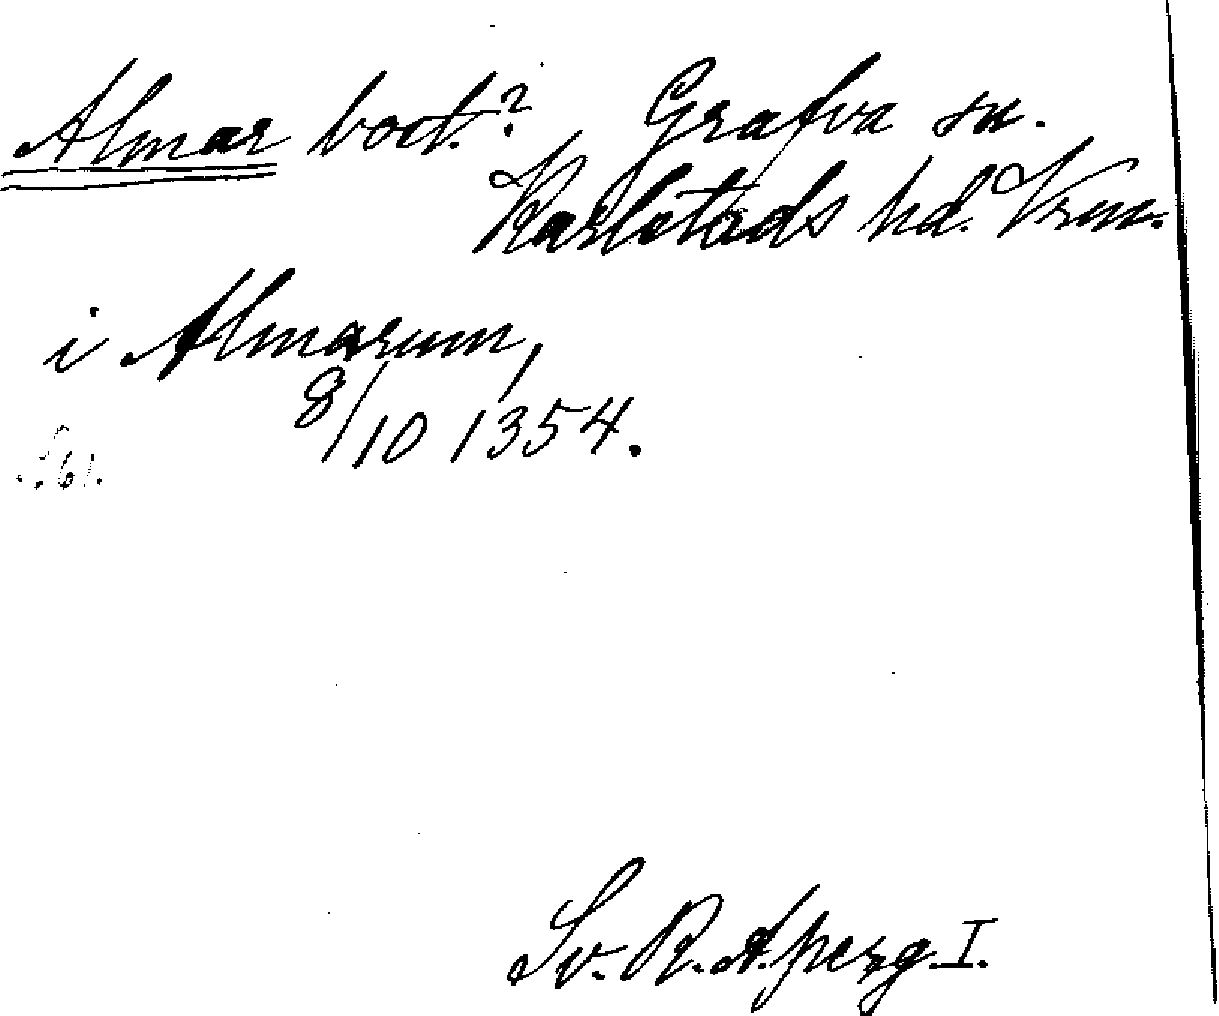 Almar bort.? Grafva sn.
Karlstads hd. Vrm.
i Almarum,
8/10 1354.
Sv. R. A. perg. I.